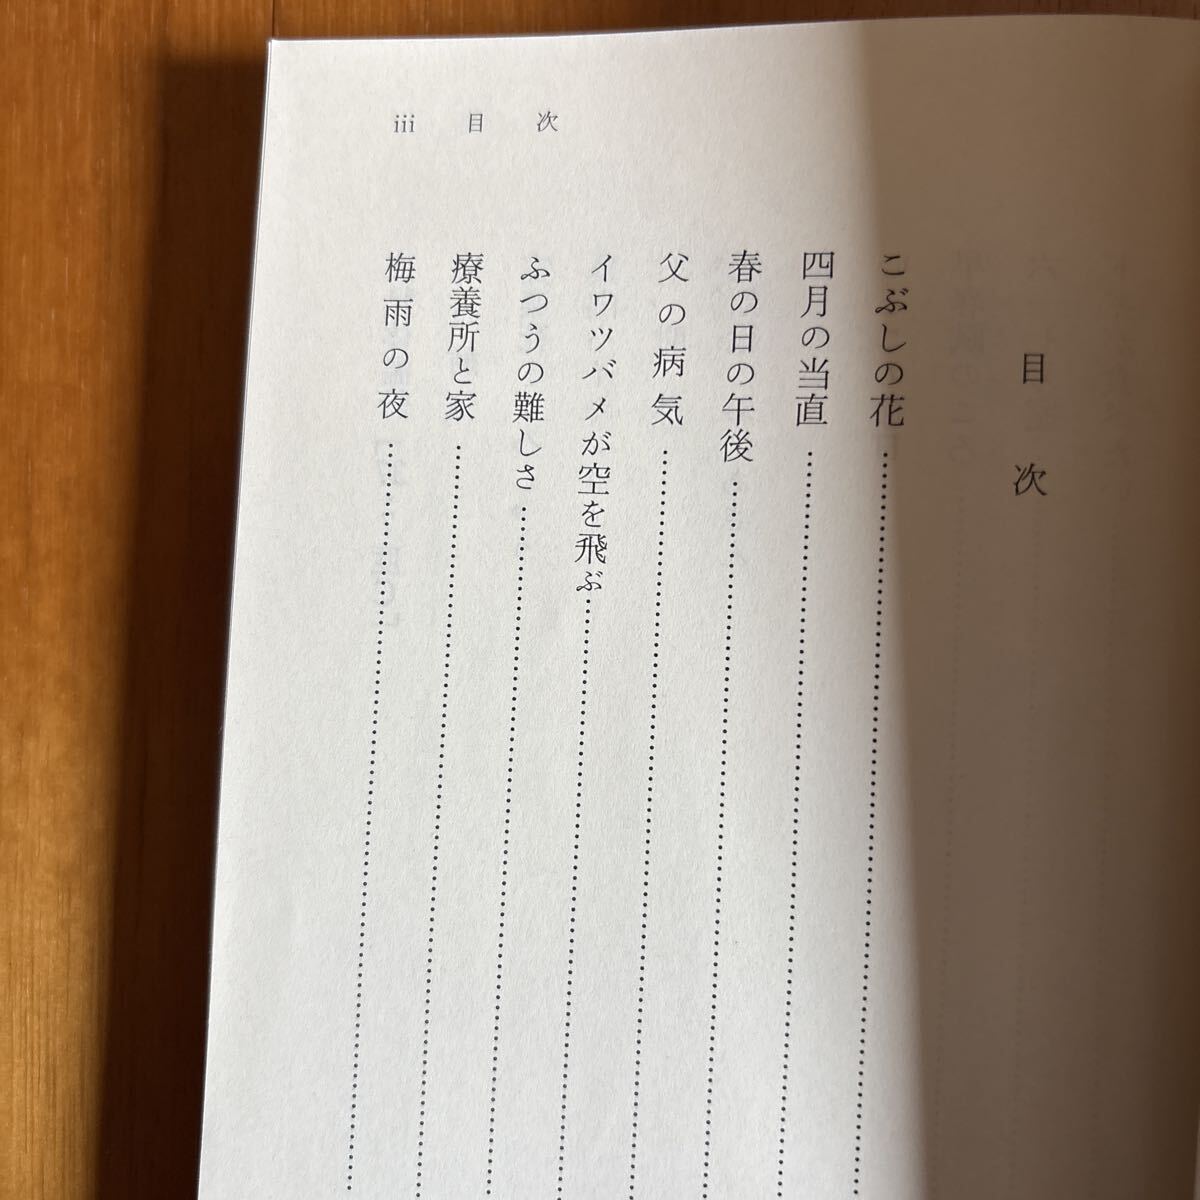 iii 目次
目次
こぶしの花
四月の当直
春の日の午後
父の病気
イワツバメが空を飛ぶ
ふつうの難しさ
療養所と家
梅雨の夜